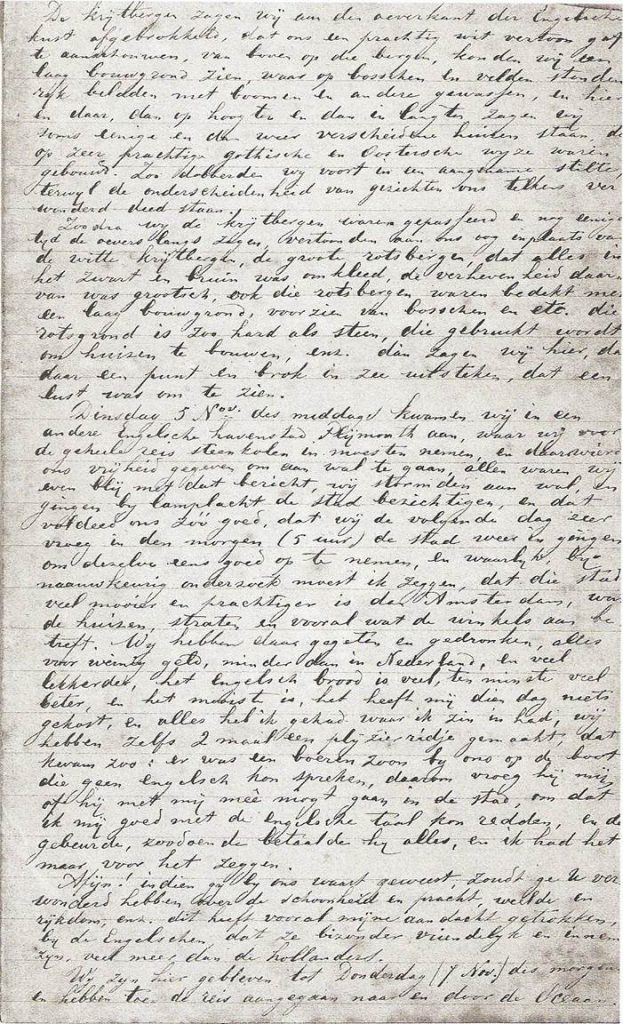 De krijtbergen zagen wij aan den oeverkant der Engelsche
kust afgebrokkeld, dat ons een prachtig wit vertoon gaf
te aanschouwen, van boven op die bergen, konden wij een
laag bouwgrond zien, waar op bosschen en velden stonden
rijk beladden met boomen en andere gewassen, en hier
en daar, dan op hoogten en dan in laagten zagen wij
soms eenige en dan weer verscheidene huizen staan, die
op zeer prachtige gothische en Oostersche wyze waren
gebouwd. Zoo dobberden wij voort in een aangename stilte,
terwijl de onderscheidenheid van gezichten ons telkens ver
wonderd deed staan.
Zoodra wij de krijtbergen waren gepasseerd en nog eenige
tijd de oevers langs zagen, vertoonden aan ons oog inplaats van
de witte krijtbergen, de groote rotsbergen, dat alles in
het zwart en bruin was omkleed, de verhevenheid daar
van was grootsch, ook die rotsbergen waren bedekt met
een laag bouwgrond, voorzien van bosschen en etc. die
rotsgrond is zoo hard als steen, die gebruikt wordt
om huizen te bouwen, enz. dan zagen wij hier, dan
daar een punt en brok in zee uitsteken, dat een
lust was om te zien.
Dinsdag 5 Nov. des middags kwamen wij in een
andere Engelsche havenstad Plijmouth aan, waar wij voor
de geheele reis steenkolen in moesten nemen, en daar wierd
ons vrijheid gegeven om aan wal te gaan, allen waren wij
even blij met dat bericht, wij stormden aan wal, en
gingen by lamplicht de stad bezichtigen, en dat
voldeed ons zoo goed, dat wij de volgende dag zeer
vroeg in den morgen (5 uur) de stad weer in gingen
om dezelve eens goed op te nemen, en waarlyk by
naauwkeurig onderzoek moest ik zeggen, dat die stad
veel mooier en prachtiger is dan Amsterdam, wat
de huizen, straten en vooral wat de winkels aan be
treft. Wy hebben daar gegeten en gedronken, alles
voor weinig geld, minder dan in Nederland, en veel
lekkerder, het Engelsch brood is veel, ten minste veel
beter, en het mooiste is, het heeft mij dien dag niets
gekost, en alles heb ik gehad waar ik zin in had, wij
hebben zelfs 2 maal een plyzierridje gemaakt, dat
kwam zoo: er was een boeren zoon by ons op de boot
die geen engelsch kon spreken, daarom vroeg hij mij
of hij met mij mêe mogt gaan in de stad, om dat
ik mij goed met de Engelsche taal kon redden, en dit
gebeurde, zoodoende betaalde hy alles, en ik had het
maar voor het zeggen.
Mijn! indien gij by ons waart geweest, zoudt ge u ver
wonderd hebben over de schoonheid en pracht, weelde en
rijkdom, enz. dit heeft vooral mijne aandacht getrokken,
by de Engelschen, dat ze bizonder vriendelyk en innem
zyn, veel meer dan de hollanders.
Wy zyn hier gebleven tot Donderdag (7 Nov.) des morgens
en hebben toe de reis aangegaan naar en door de Oceaan.